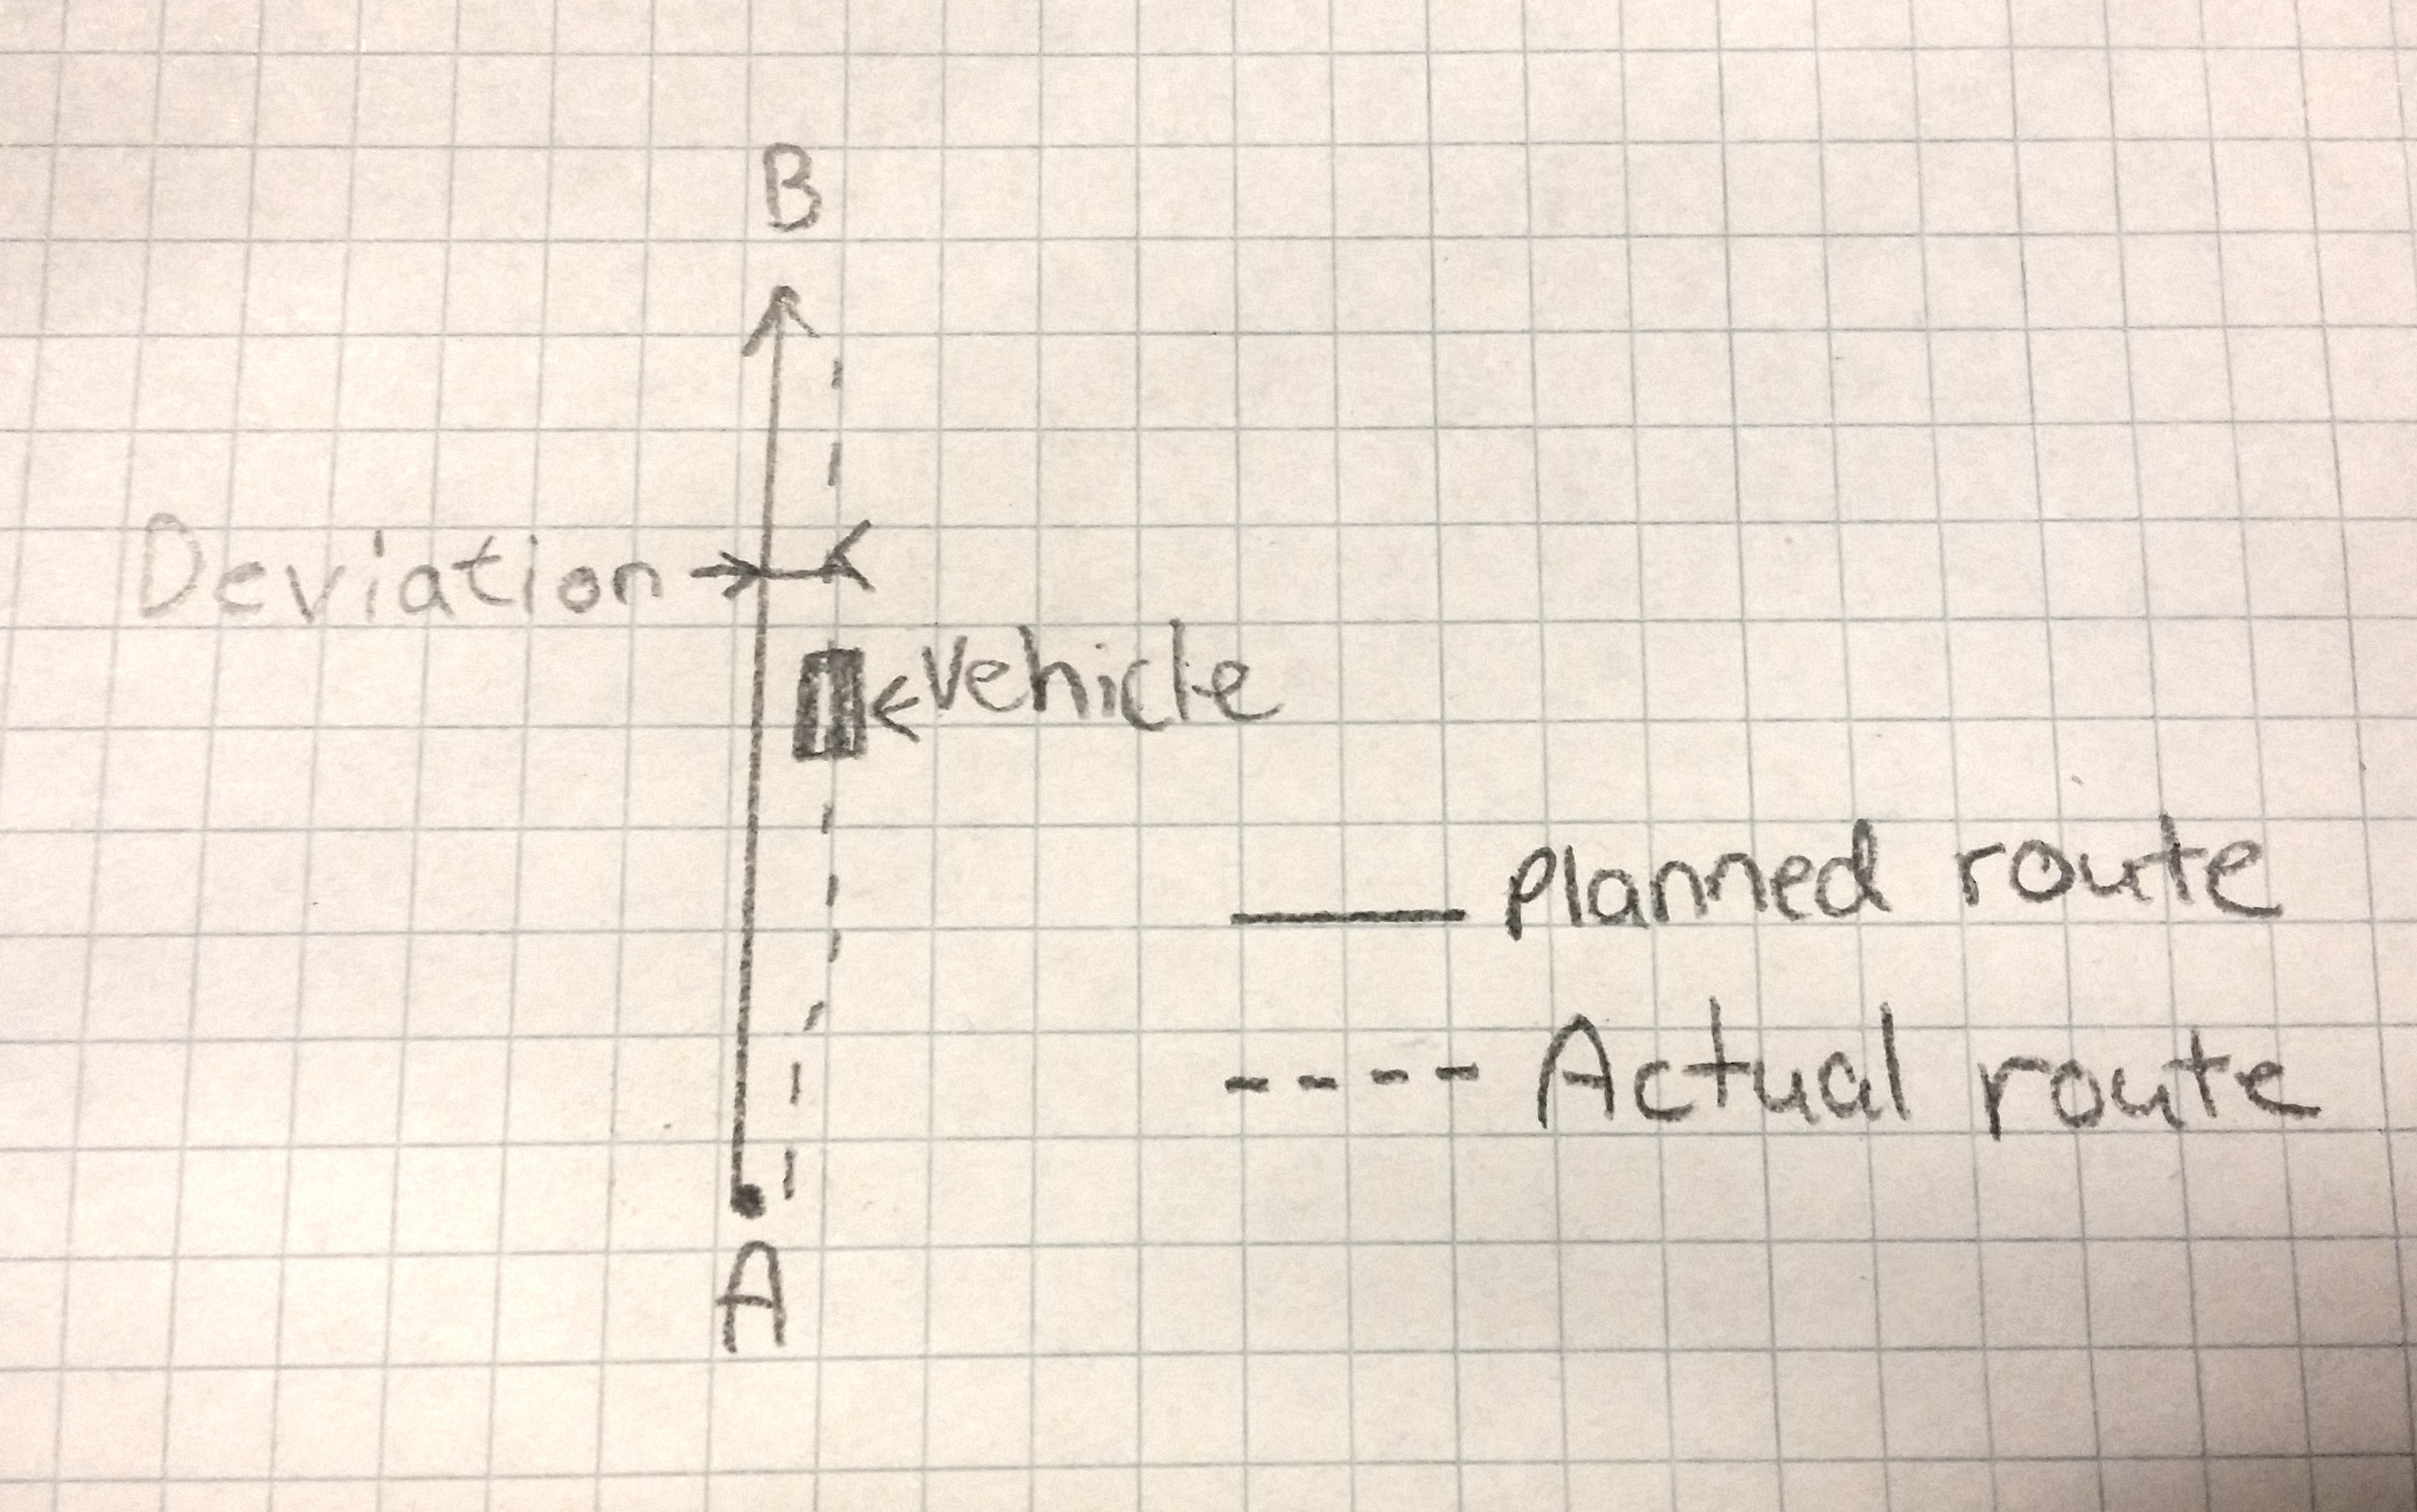 B
Deviation
Vehicle
planned route
Actual route
A